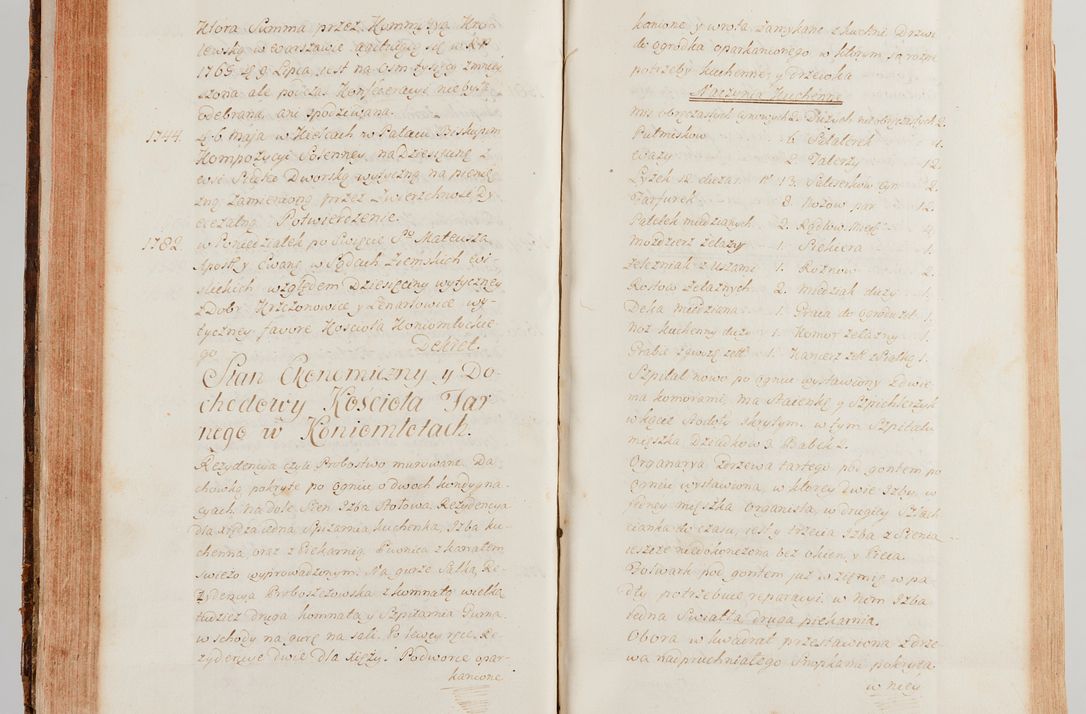 Która Summa przez Kommissyą Kro-
lewską w Warszawie agituiącą się w RP
1765 d 9 Lipca iest na osm tysięcy zmniey
szona ale podczas Konfederacyi nie była
odebrana ani spodziwana.
1744. d 6 maja w Kielcach w Pałacu Biskupim
Kompozycyi Solenney, na Dziesięcinę z
wsi Rudki Dworską wytyczną na pienię
zną zamienioną przez Zwierzchność Dy
ecezalną Potwierdzenie.
1782. w Poniedziałek po Święcie Sgo Mateusza
Apost. y Ewang. w Sądach Ziemskich Wi-
slickich względem Dziesięciny wytyczney
z Dobr Krzczonowice y Lenartowice wy-
tyczney favore Kościoła Koniemłockie
go Dekret.
Stan Ekonomiczny y Do-
chodowy Kościoła Far
nego w Koniemłotach.
Rezydencya czyli Probostwo murowane, Da-
chówką pokryte po ogniu o dwoch kondygna-
cyach. Na dole Sien Izba Stołowa, Rezydencya
dla xiędza iedna, Spizarnia, Kuchenka, Izba ku-
chenna, oraz z Piekarnią, Piwnica z kanałem
świezo wyprowadzonym. Na gurze Salka, Re-
zydencya Proboszczowska z komnatą wielką
tudziez druga komnata y Szpitarnia Guma.
wschody na gurę na sali. Po lewey ręce Re-
zydencye dwie dla xięzy. Podworze opar-
kanione
kanione y wrota zamykane z kuchni Drzwi
do ogródka oparkanionego w którym są rozne
potrzeby kuchenne y drzewka
Naczynia Kuchenne
mis obrączastych cynowych 2. Duzych nieobrączastych 2.
Pułmiskow 6 Salaterek 4.
Wazy 2 Talerzy 12.
Łyzek 12 duza 1. N 13. Salaterków cyn 2.
Farfurek 8. Nożow par 12.
Patelek miedzianych 2. Rądlow Mied 4
mozdzierz zelazny 1. Siekiera 1.
Zelezniak z uszami 1. Roznow 2.
Rostow zelaznych 2. miedziak duzy 1.
Deka miedziana 1. Graca do ogrodu zel 1.
Noz kuchenny duzy 1. Komor zelazny 1.
Grabie zgwozę zell 1.
Szpital nowo po ogniu wystawiony z dwie
ma komorami, ma Staienkę y Szpichlerzyk
w kącie Stodoły skrytym. w tym Szpitalu
mięszka Dziadkow 3. Babek 2.
Organarya z drzewa tartego pod gontem po
ogniu wystawiona, w ktorey dwie Izby, w
iedney mięszka Organista, w drugiey Szlach
cianka do czasu, iest y trzecia Izba z Sienią
ieszcze niedokończona bez okien, y Pieca.
Folwark pod gontem już w ziemię w pa-
dły potrzebuie reparacyi. w nem Izba
iedna Swiatła druga piekarnia.
Obora w kwadrat przestawiona z drze
wa nadpruchniałego Snopkami pokryta
w niey